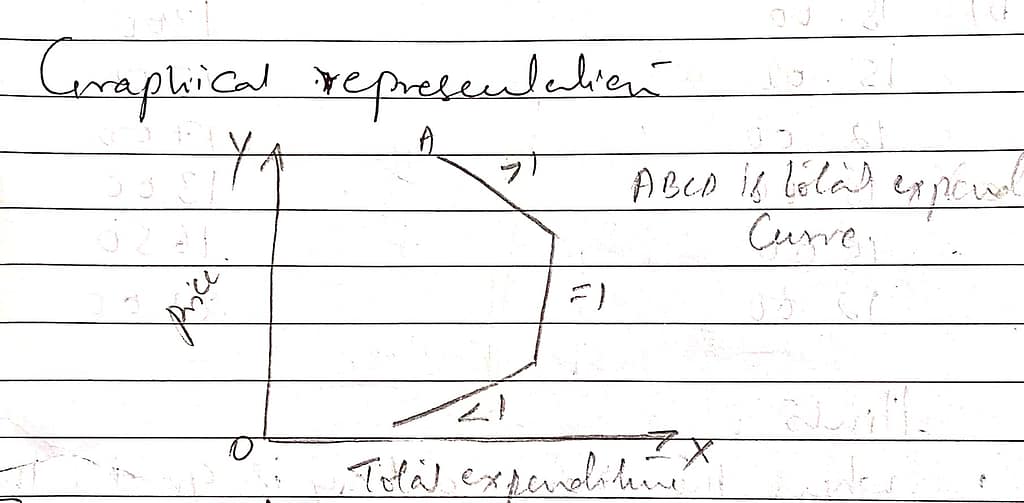 Graphical representation
Y
A
>1
ABCD is total expend
Curve.
price.
=1
<1
O
X
Total expenditure